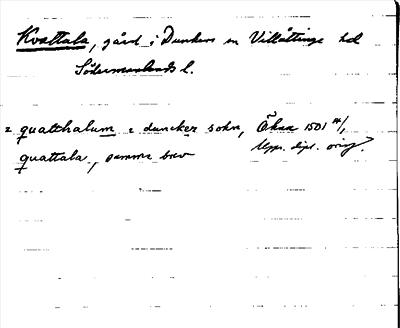 Kvattala, gård i Dunkers sn Villåttinge hd
Södermanlands l.
i quatthalum i duncker sokn, Åkna 1501 /1,
quattala, samma brev Upps. dipl. orig.